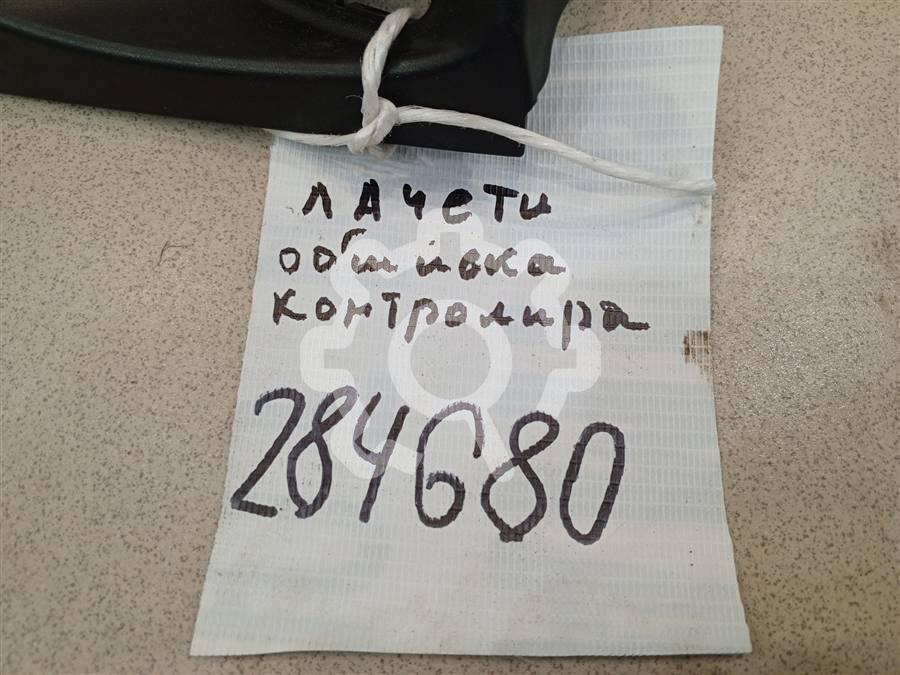 лАчети
обшивка
контролира
284680